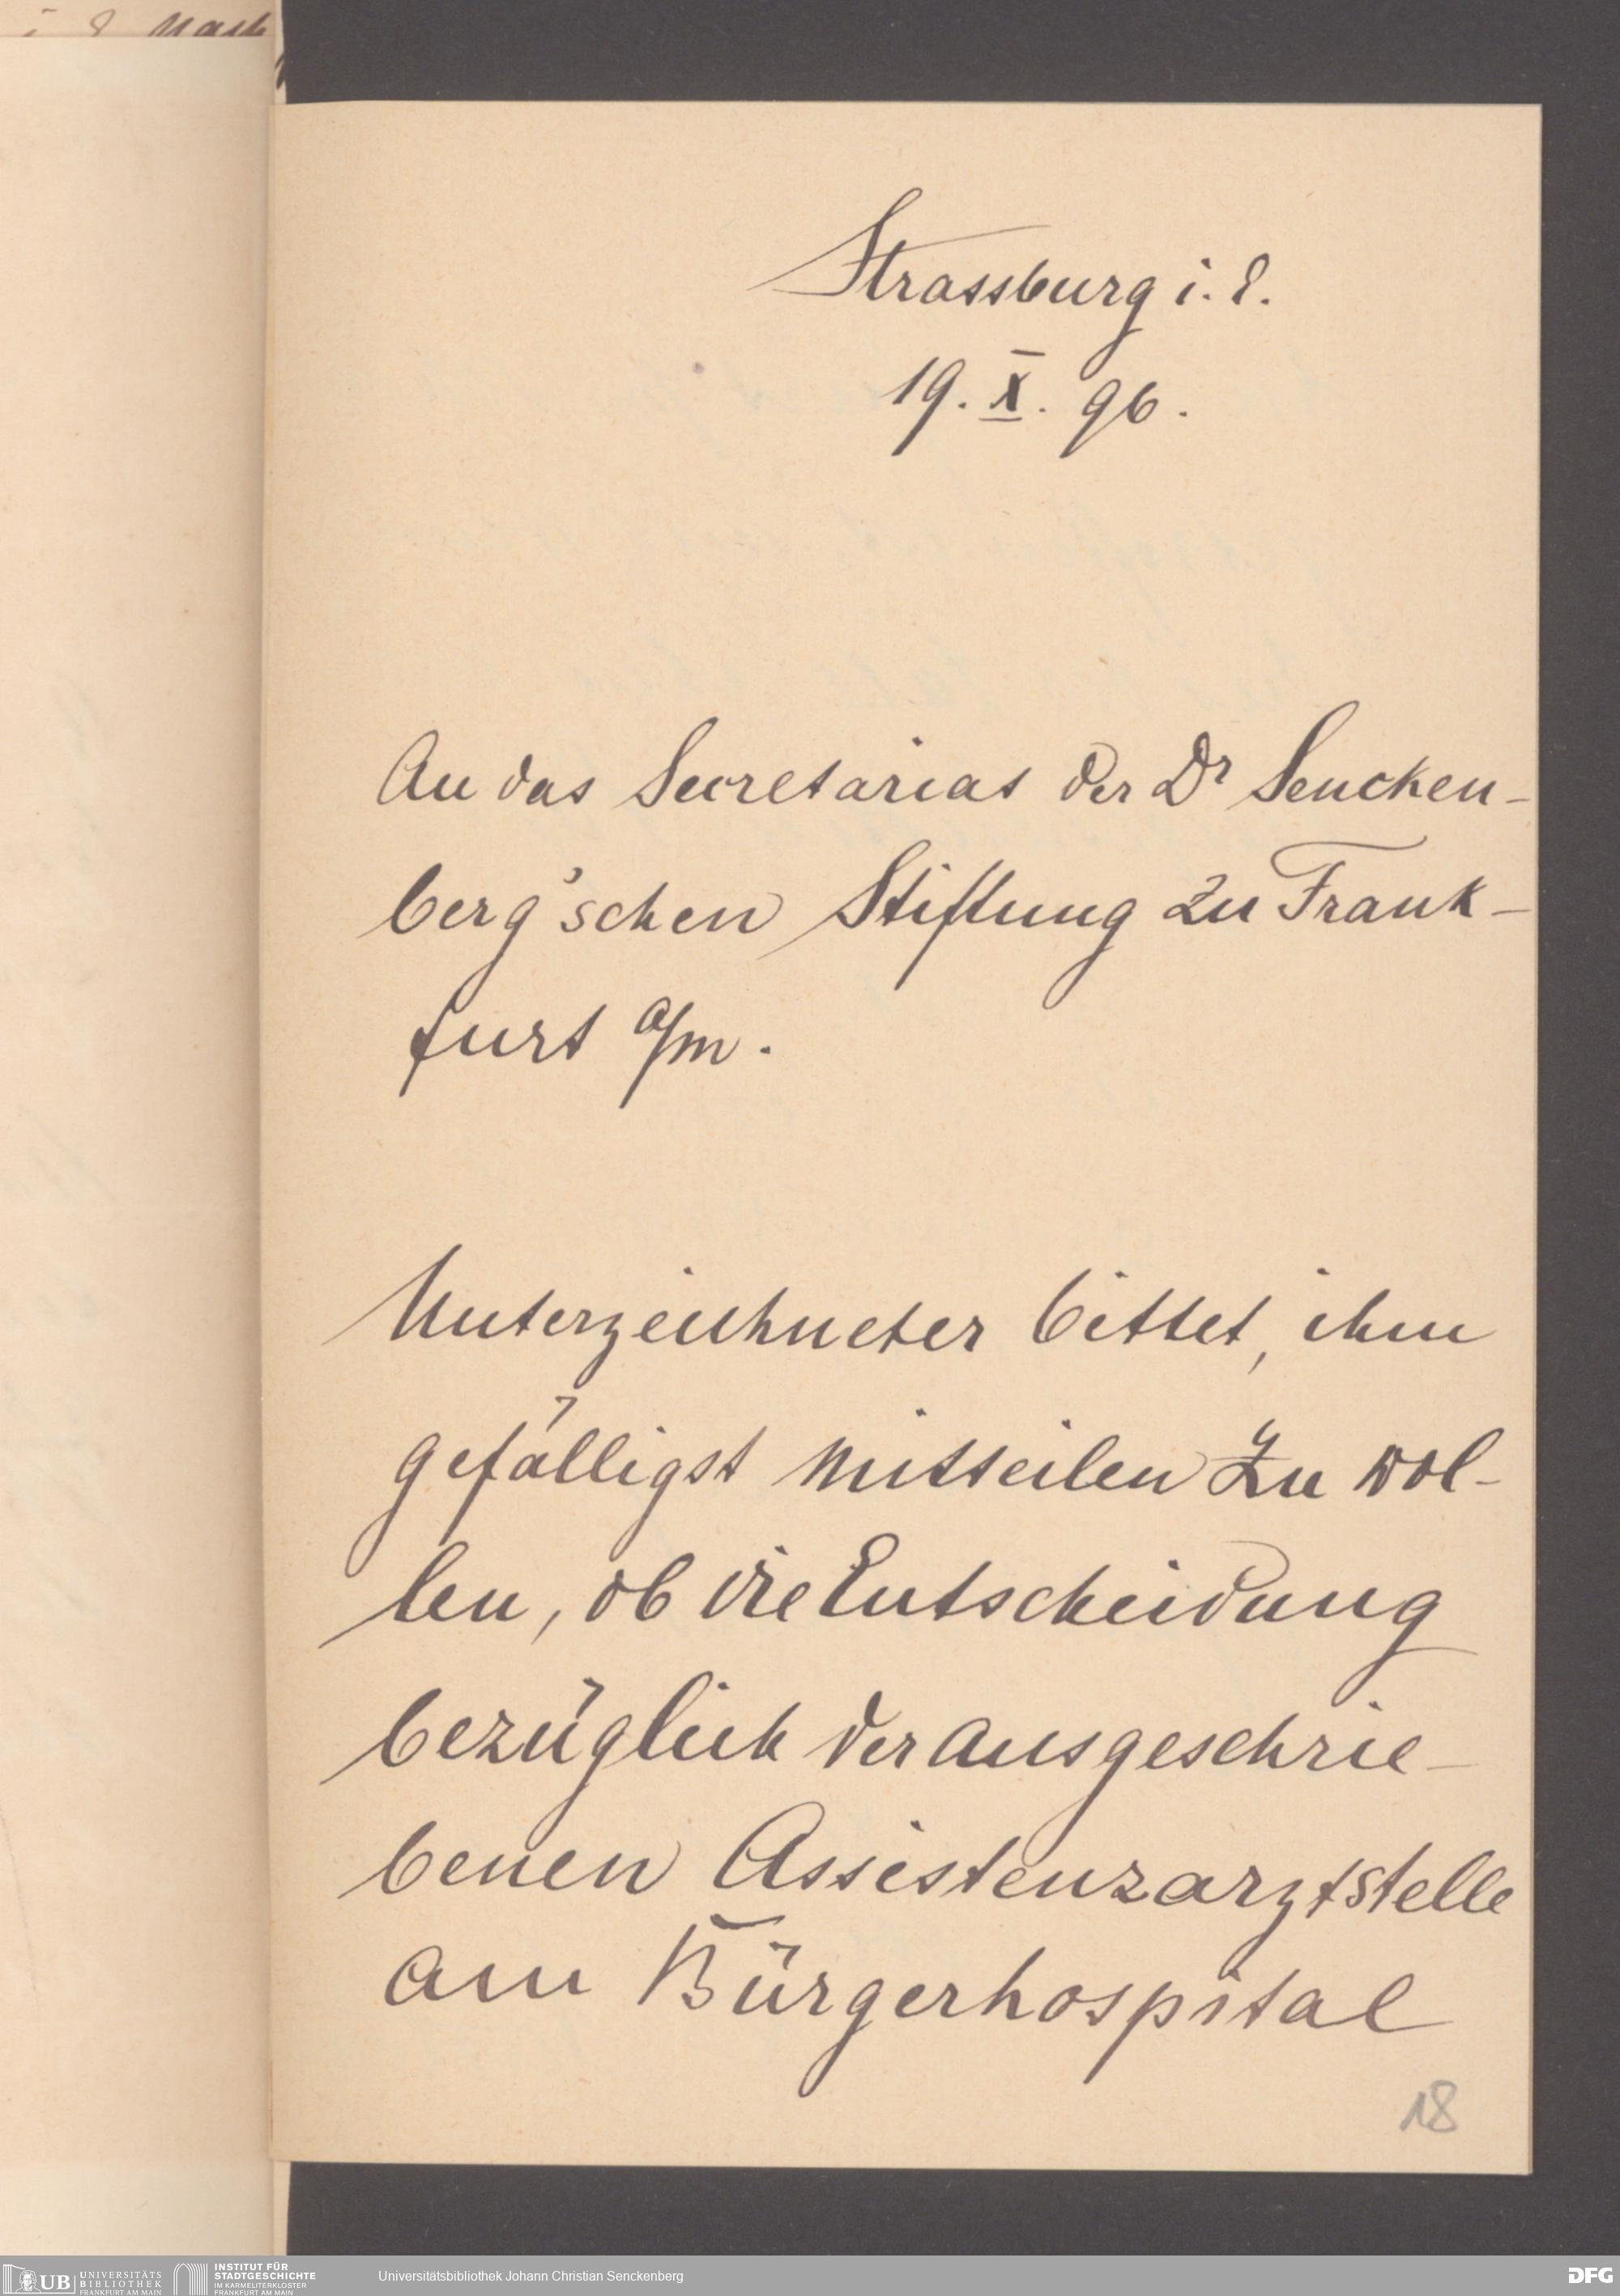 Strassburg i. E.
19. X. 96.
An das Secretariat der Dr Sencken-
berg'schen Stiftung zu Frank-
furt a/m.
Unterzeichneter bittet, ihm
gefälligst mitteilen zu wol-
len, ob die Entscheidung
bezüglich der ausgeschrie-
benen Assistenzarztstelle
am Bürgerhospital
18
UB UNIVERSITÄTS
BIBLIOTHEK
FRANKFURT AM MAIN
INSTITUT FÜR
STADTGESCHICHTE
IM KARMELITERKLOSTER
FRANKFURT AM MAIN
Universitätsbibliothek Johann Christian Senckenberg
DFG